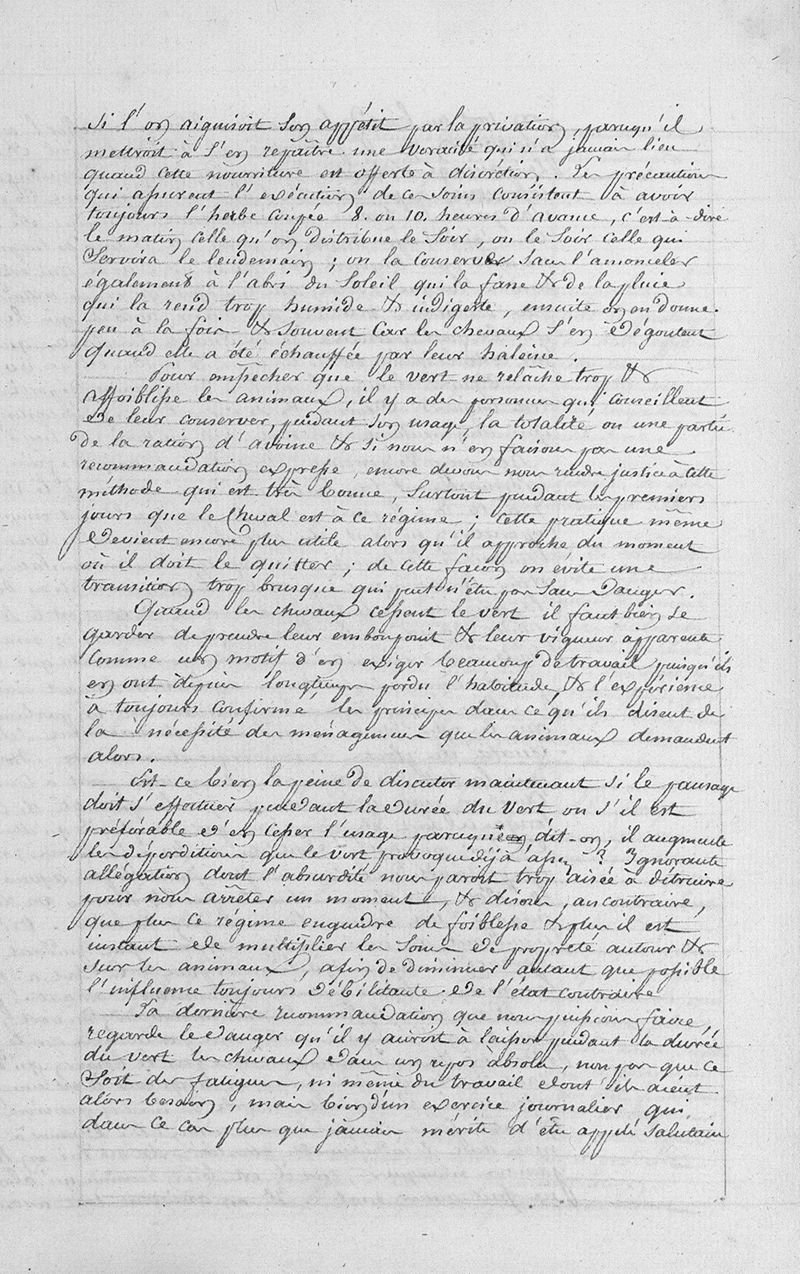 si l'on aiguisoit son appétit par la privation, parcequ'il
mettroit à s'en repaître une voracité qui n'a jamais lieu
quand cette nourriture est offerte à discrétion. Les précautions
qui assurent l'exécution de ce soins consistent à avoir
toujours l'herbe coupée 8. ou 10. heures d'avance, c'est-à-dire
le matin celle qu'on distribue le soir, ou le soir celle qui
servira le lendemain; on la conserve sans l'amonceler
également à l'abri du soleil qui la fane & de la pluie
qui la rend trop humide & indigeste, ensuite on en donne
peu à la fois & souvent car les chevaux s'en dégoutent
quand elle a été échauffée par leur haleine.
Pour empêcher que le vert ne relâche trop &
affoiblisse les animaux, il y a des personnes qui conseillent
de leur conserver, pendant son usage, la totalité ou une partie
de la ration d'avoine & si nous n'en faisons pas une
recommandation expresse, encore devons nous rendre justice à cette
méthode qui est très bonne, surtout pendant les premiers
jours que le cheval est à ce régime; cette pratique même
devient encore plus utile alors qu'il approche du moment
où il doit le quitter; de cette façon on évite une
transition trop brusque qui peut n'être pas sans danger.
Quand les chevaux cessent le vert il faut bien se
garder de prendre leur embonpoint & leur vigueur apparente
comme un motif d'en exiger beaucoup de travail puisqu'ils
en ont depuis longtemps perdu l'habitude, & l'expérience
à toujours confirmé les principes dans ce qu'ils disent de
la nécessité des ménagemens que les animaux demandent
alors.
Est-ce bien la peine de discuter maintenant si le pansage
doit s'effectuer pendant la durée du vert ou s'il est
préférable d'en cesser l'usage parceque, dit-on, il augmente
les déperditions que le vert provoque déjà assez? Ignorante
allégation dont l'absurdité nous paroit trop aisée à détruire
pour nous arrêter un moment, & disons, au contraire,
que plus ce régime engendre de foiblesse & plus il est
instant de multiplier les soins de propreté autour &
sur les animaux, afin de diminuer autant que possible
l'influence toujours débilitante de l'état contraire
La dernière recommandation que nous puissions faire,
regarde le danger qu'il y auroit à laisser pendant la durée
du vert les chevaux dans un repos absolu, non pas que ce
soit des fatigues, ni même du travail dont ils aient
alors besoin, mais bien d'un exercice journalier qui
dans ce cas plus que jamais mérite d'être appelé salutaire